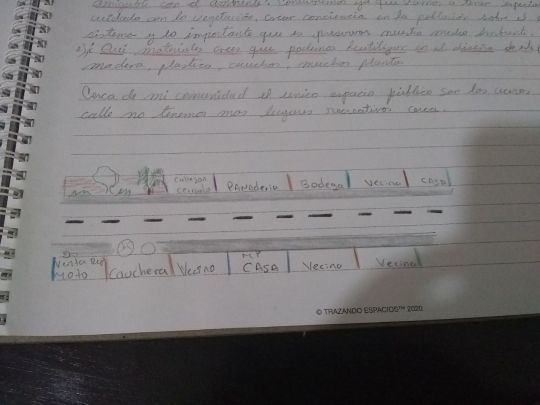 amigable con el ambiente, ya que vamos a
cuidado con la vegetación, crear conciencia en la población sobre el
sistema y lo importante que es preservar nuestro medio ambiente.
¿Qué materiales crees que podemos reutilizar en el diseño de
madera, plastico, cauchos, muchas plantas
Cerca de mi comunidad el unico espacio público son las
calle no tenemos mas lugares recreativos cerca.
Callejon Cerrado PANAderia Bodega Vecino CASA
Venta De Moto Cauchera Vecino MI CASA Vecino Vecino
© TRAZANDO ESPACIOS™ 2020